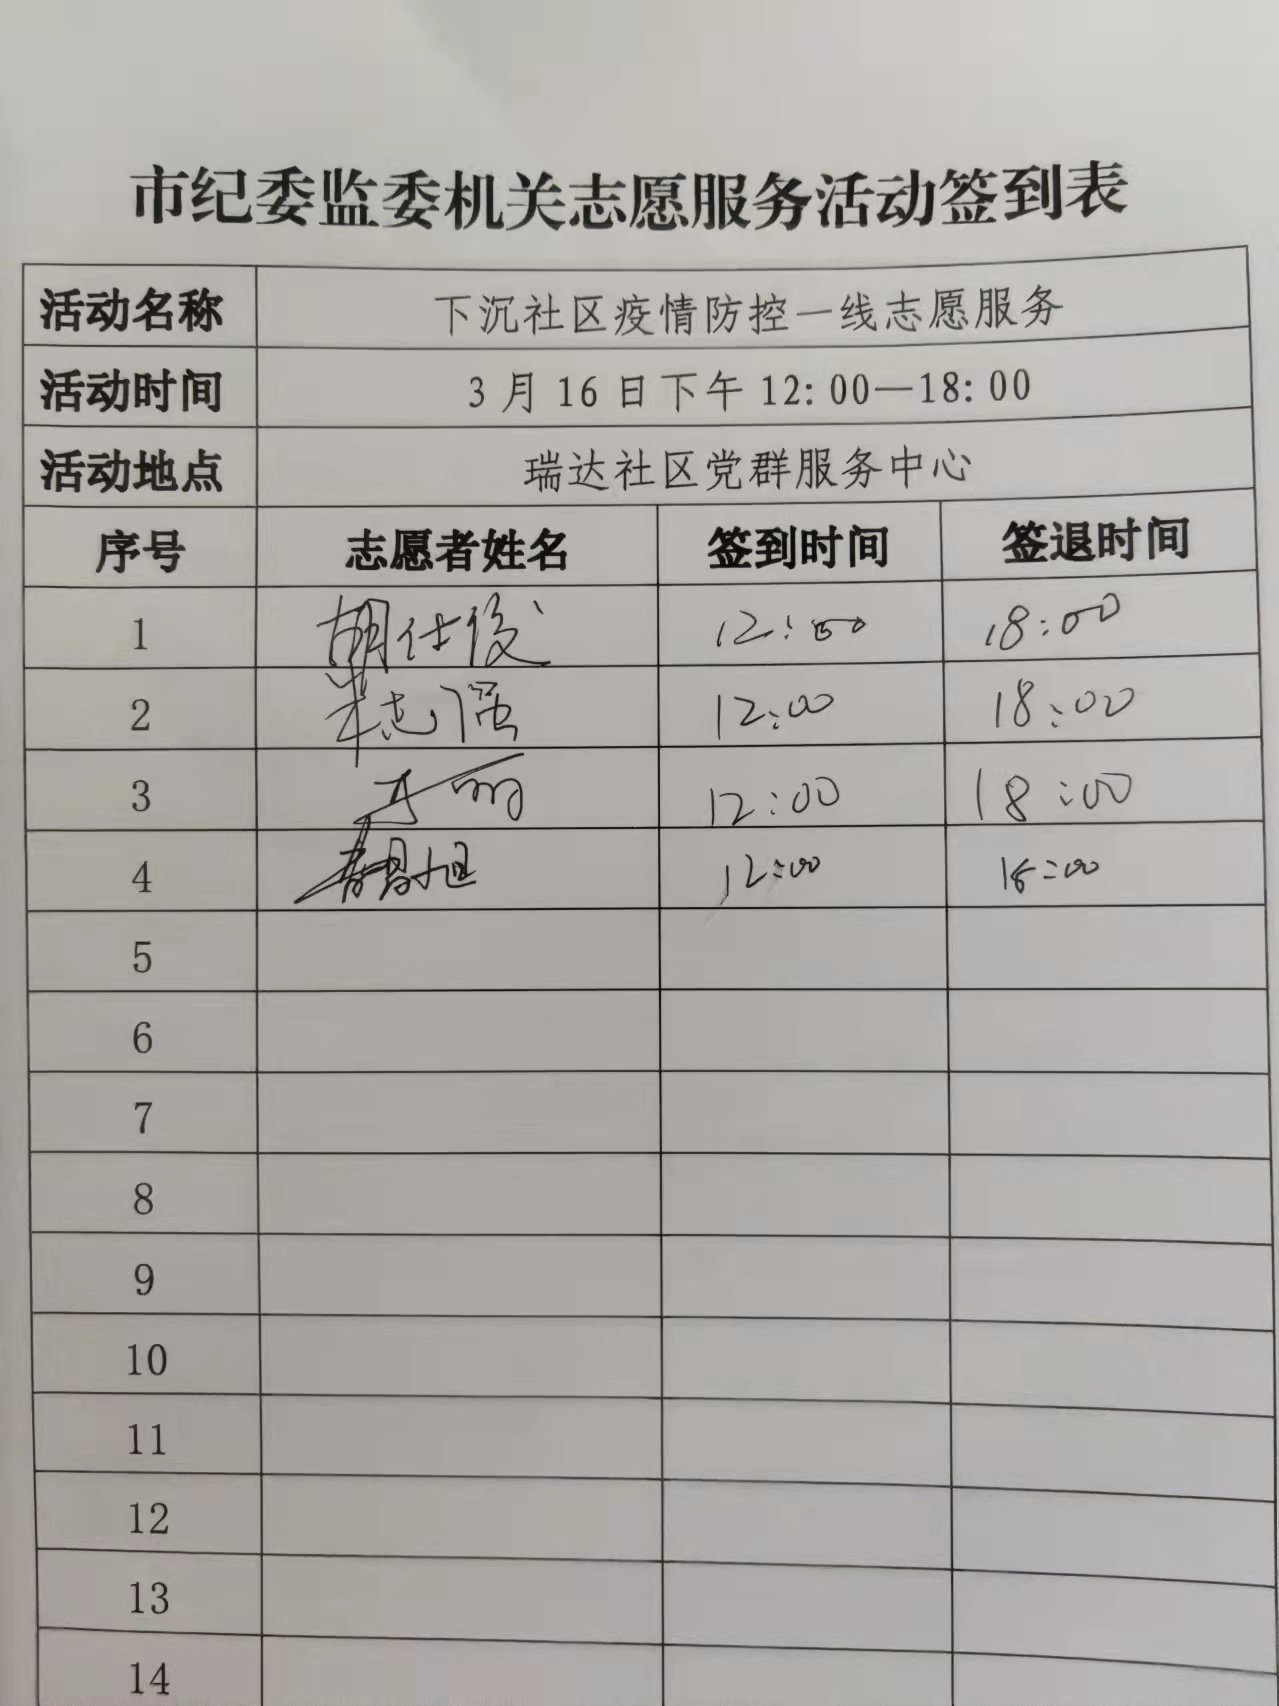 市纪委监委机关志愿服务活动签到表
活动名称 下沉社区疫情防控一线志愿服务
活动时间 3月16日下午12:00—18:00
活动地点 瑞达社区党群服务中心
序号 志愿者姓名 签到时间 签退时间
1 胡仕俊 12:00 18:00
2 朱志强 12:00 18:00
3 12:00 18:00
4 12:00 18:00
5
6
7
8
9
10
11
12
13
14